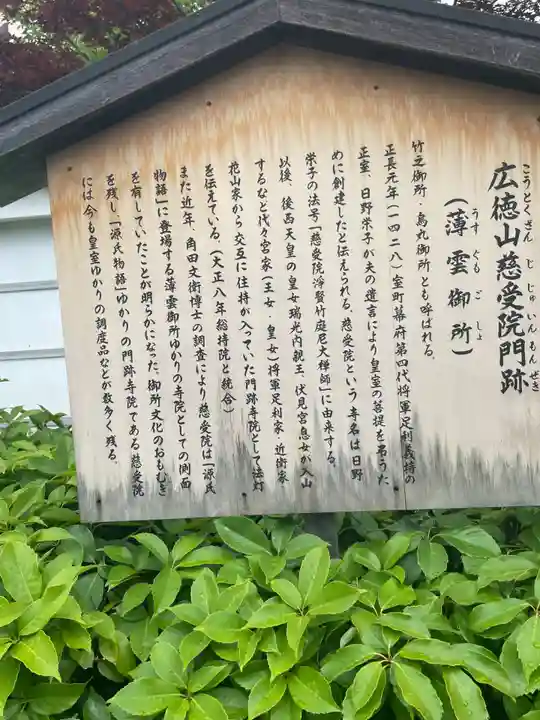 広徳山慈受院門跡
こうとくざんじじゅいんもんぜき
(薄雲御所)
うすぐもごしょ
竹之御所・烏丸御所とも呼ばれる。
正長元年(一四二八)室町幕府第四代将軍足利義持の
正室、日野栄子が夫の遺言により皇室の菩提を弔うた
めに創建したと伝えられる。慈受院という寺名は日野
栄子の法号「慈受院浄賢竹庭尼大禅師」に由来する。
以後、後西天皇の皇女瑞光内親王、伏見宮息女が入山
するなど代々宮家(王女・皇女)将軍足利家・近衛家・
花山家から交互に住持が入っていた門跡寺院として法灯
を伝えている。(大正八年総持院と統合)
また近年、角田文衛博士の調査により慈受院は「源氏
物語」に登場する薄雲御所ゆかりの寺院としての側面
を有していたことが明らかになった。御所文化のおもむき
を残し、「源氏物語」ゆかりの門跡寺院である慈受院
には今も皇室ゆかりの調度品などが数多く残る。